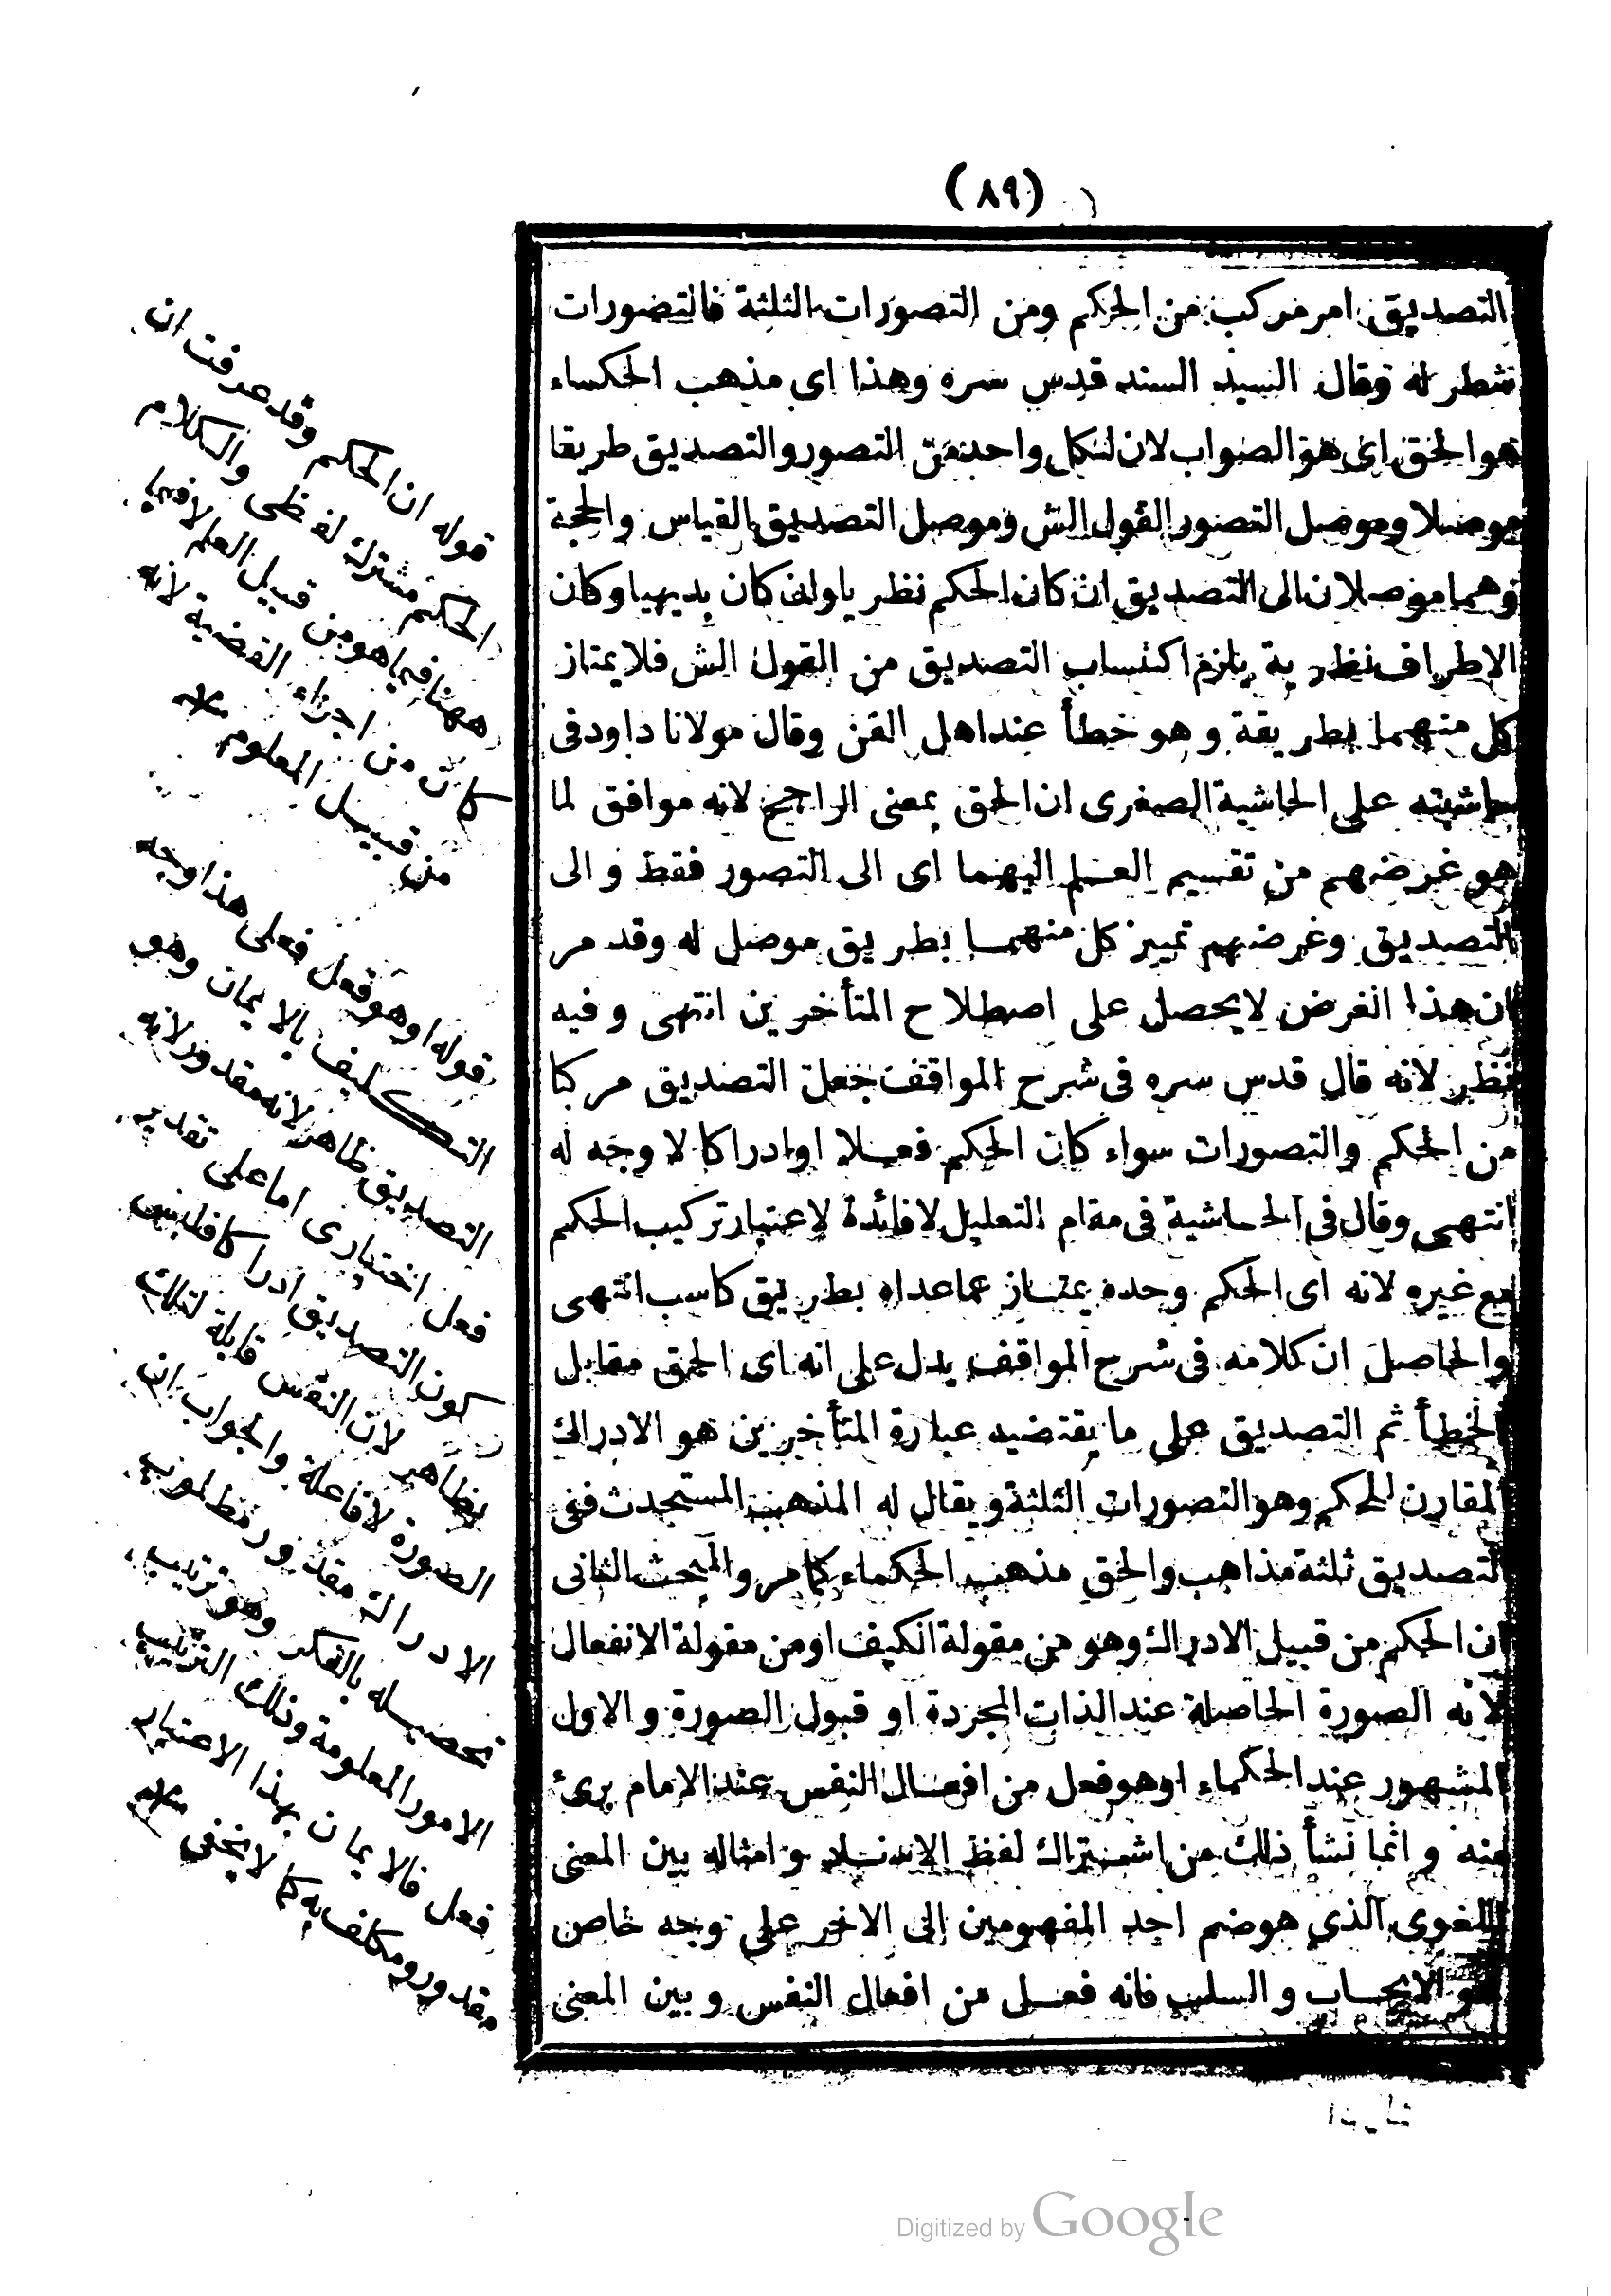 (٨٩)
التصديق امر مركب من الحكم ومن التصورات الثلثة فالتصورات
شطر له وقال السيد السند قدس سره وهذا اى مذهب الحكماء
هو الحق اى هو الصواب لان لكل واحد من التصور والتصديق طريقا
موصلا وموصل التصور القول الش وموصل التصديق القياس والحجة
وهما موصلان الى التصديق ان كان الحكم نظريا وان كان بديهيا وكان
الاطراف نظرية يلزم اكتساب التصديق من القول الش فلا يمتاز
كل منهما بطريقة وهو خطأ عند اهل الفن وقال مولانا داود فى
حاشيته على الحاشية الصغرى ان الحق بمعنى الراجح لانه موافق لما
هو غرضهم من تقسيم العلم اليهما اى الى التصور فقط والى
التصديق وغرضهم تمييز كل منهما بطريق موصل له وقد مر
ان هذا الغرض لا يحصل على اصطلاح المتأخرين انتهى وفيه
نظر لانه قال قدس سره فى شرح المواقف جعل التصديق مركبا
من الحكم والتصورات سواء كان الحكم فعلا او ادراكا لا وجه له
انتهى وقال فى الحاشية فى مقام التعليل لا فائدة لاعتبار تركيب الحكم
مع غيره لانه اى الحكم وحده يمتاز عما عداه بطريق كاسب انتهى
والحاصل ان كلامه فى شرح المواقف يدل على انه اى الحق مقابل
الخطأ ثم التصديق على ما يقتضيه عبارة المتأخرين هو الادراك
المقارن للحكم وهو التصورات الثلثة ويقال له المذهب المستحدث ففى
التصديق ثلثة مذاهب والحق مذهب الحكماء كما مر والمبحث الثانى
ان الحكم من قبيل الادراك وهو من مقولة الكيف او من مقولة الانفعال
لانه الصورة الحاصلة عند الذات المجردة او قبول الصورة والاول
المشهور عند الحكماء او هو فعل من افعال النفس عند الامام برئ
منه وانما نشأ ذلك من اشتراك لفظ الاسناد وامثاله بين المعنى
اللغوى الذى هو ضم احد المفهومين الى الاخر على وجه خاص
هو الايجاب والسلب فانه فعل من افعال النفس وبين المعنى
قوله ان الحكم وقد عرفت ان
الحكم مشترك لفظى والكلام
ههنا فيما هو من قبيل العلم لا فيما
كان من اجزاء القضية لانه
من قبيل المعلوم منه
قوله او هو فعل فعلى هذا وجه
التكليف بالايمان وهو
التصديق ظاهر لانه مقدور لانه
فعل اختيارى اما على تقدير
كون التصديق ادراكا فليس
بظاهر لان النفس قابلة لتلك
الصورة لا فاعلة والجواب ان
الادراك مقدور نظرا لمن
تحصيله بالفكر وهو ترتيب
الامور المعلومة وذلك الترتيب
فعل فالايمان بهذا الاعتبار
مقدور ومكلف به كما لا يخفى منه
Digitized by Google